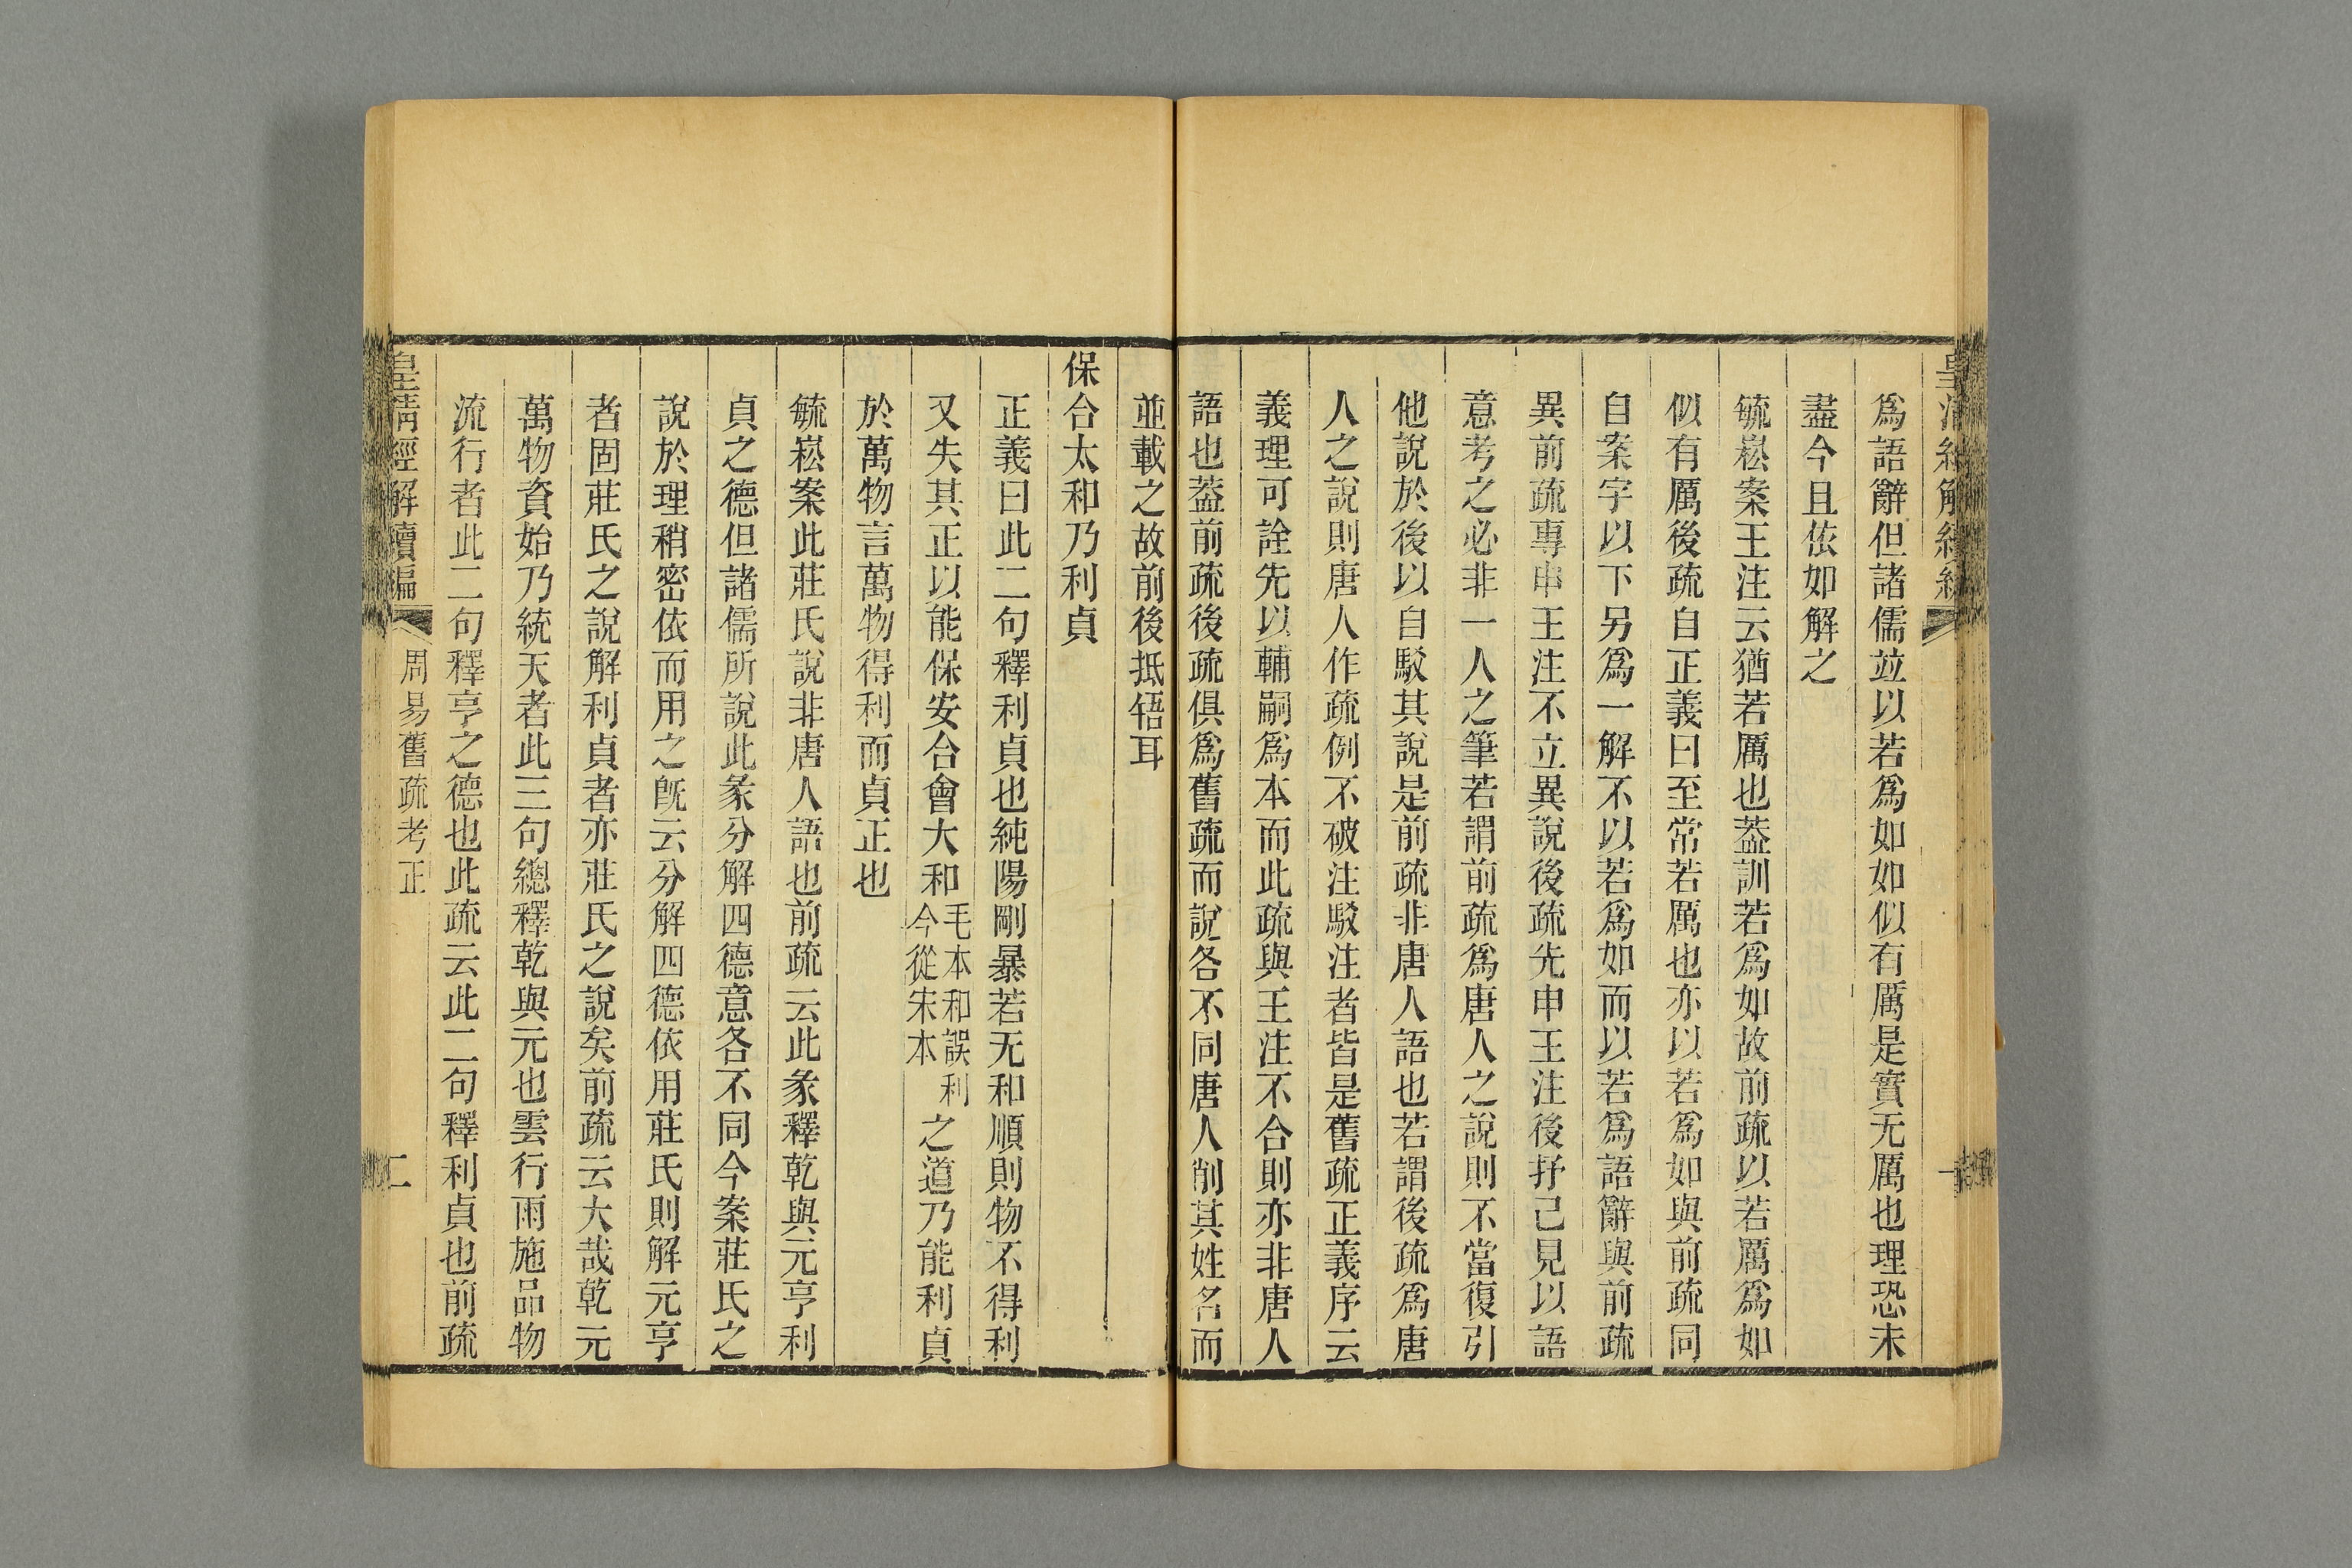 爲語辭但諸儒竝以若爲如如似有厲是實无厲也理恐未
盡今且依如解之
毓崧案王注云猶若厲也葢訓若爲如故前疏以若厲爲如
似有厲後疏自正義曰至常若厲也亦以若爲如與前疏同
自案字以下另爲一解不以若爲如而以若爲語辭與前疏
異前疏專申王注不立異說後疏先申王注後抒己見以語
意考之必非一人之筆若謂前疏爲唐人之說則不當復引
他說於後以自駁其說是前疏非唐人語也若謂後疏爲唐
人之說則唐人作疏例不破注駁注者皆是舊疏正義序云
義理可詮先以輔嗣爲本而此疏與王注不合則亦非唐人
語也葢前疏後疏俱爲舊疏而說各不同唐人削其姓名而
並載之故前後抵牾耳
保合太和乃利貞
正義曰此二句釋利貞也純陽剛暴若无和順則物不得利
又失其正以能保安合會大和毛本和誤利今從宋本之道乃能利貞
於萬物言萬物得利而貞正也
毓崧案此莊氏說非唐人語也前疏云此彖釋乾與元亨利
貞之德但諸儒所說此彖分解四德意各不同今案莊氏之
說於理稍密依而用之旣云分解四德依用莊氏則解元亨
者固莊氏之說解利貞者亦莊氏之說矣前疏云大哉乾元
萬物資始乃統天者此三句總釋乾與元也雲行雨施品物
流行者此二句釋亨之德也此疏云此二句釋利貞也前疏
皇清經解續編 周易舊疏考正 二